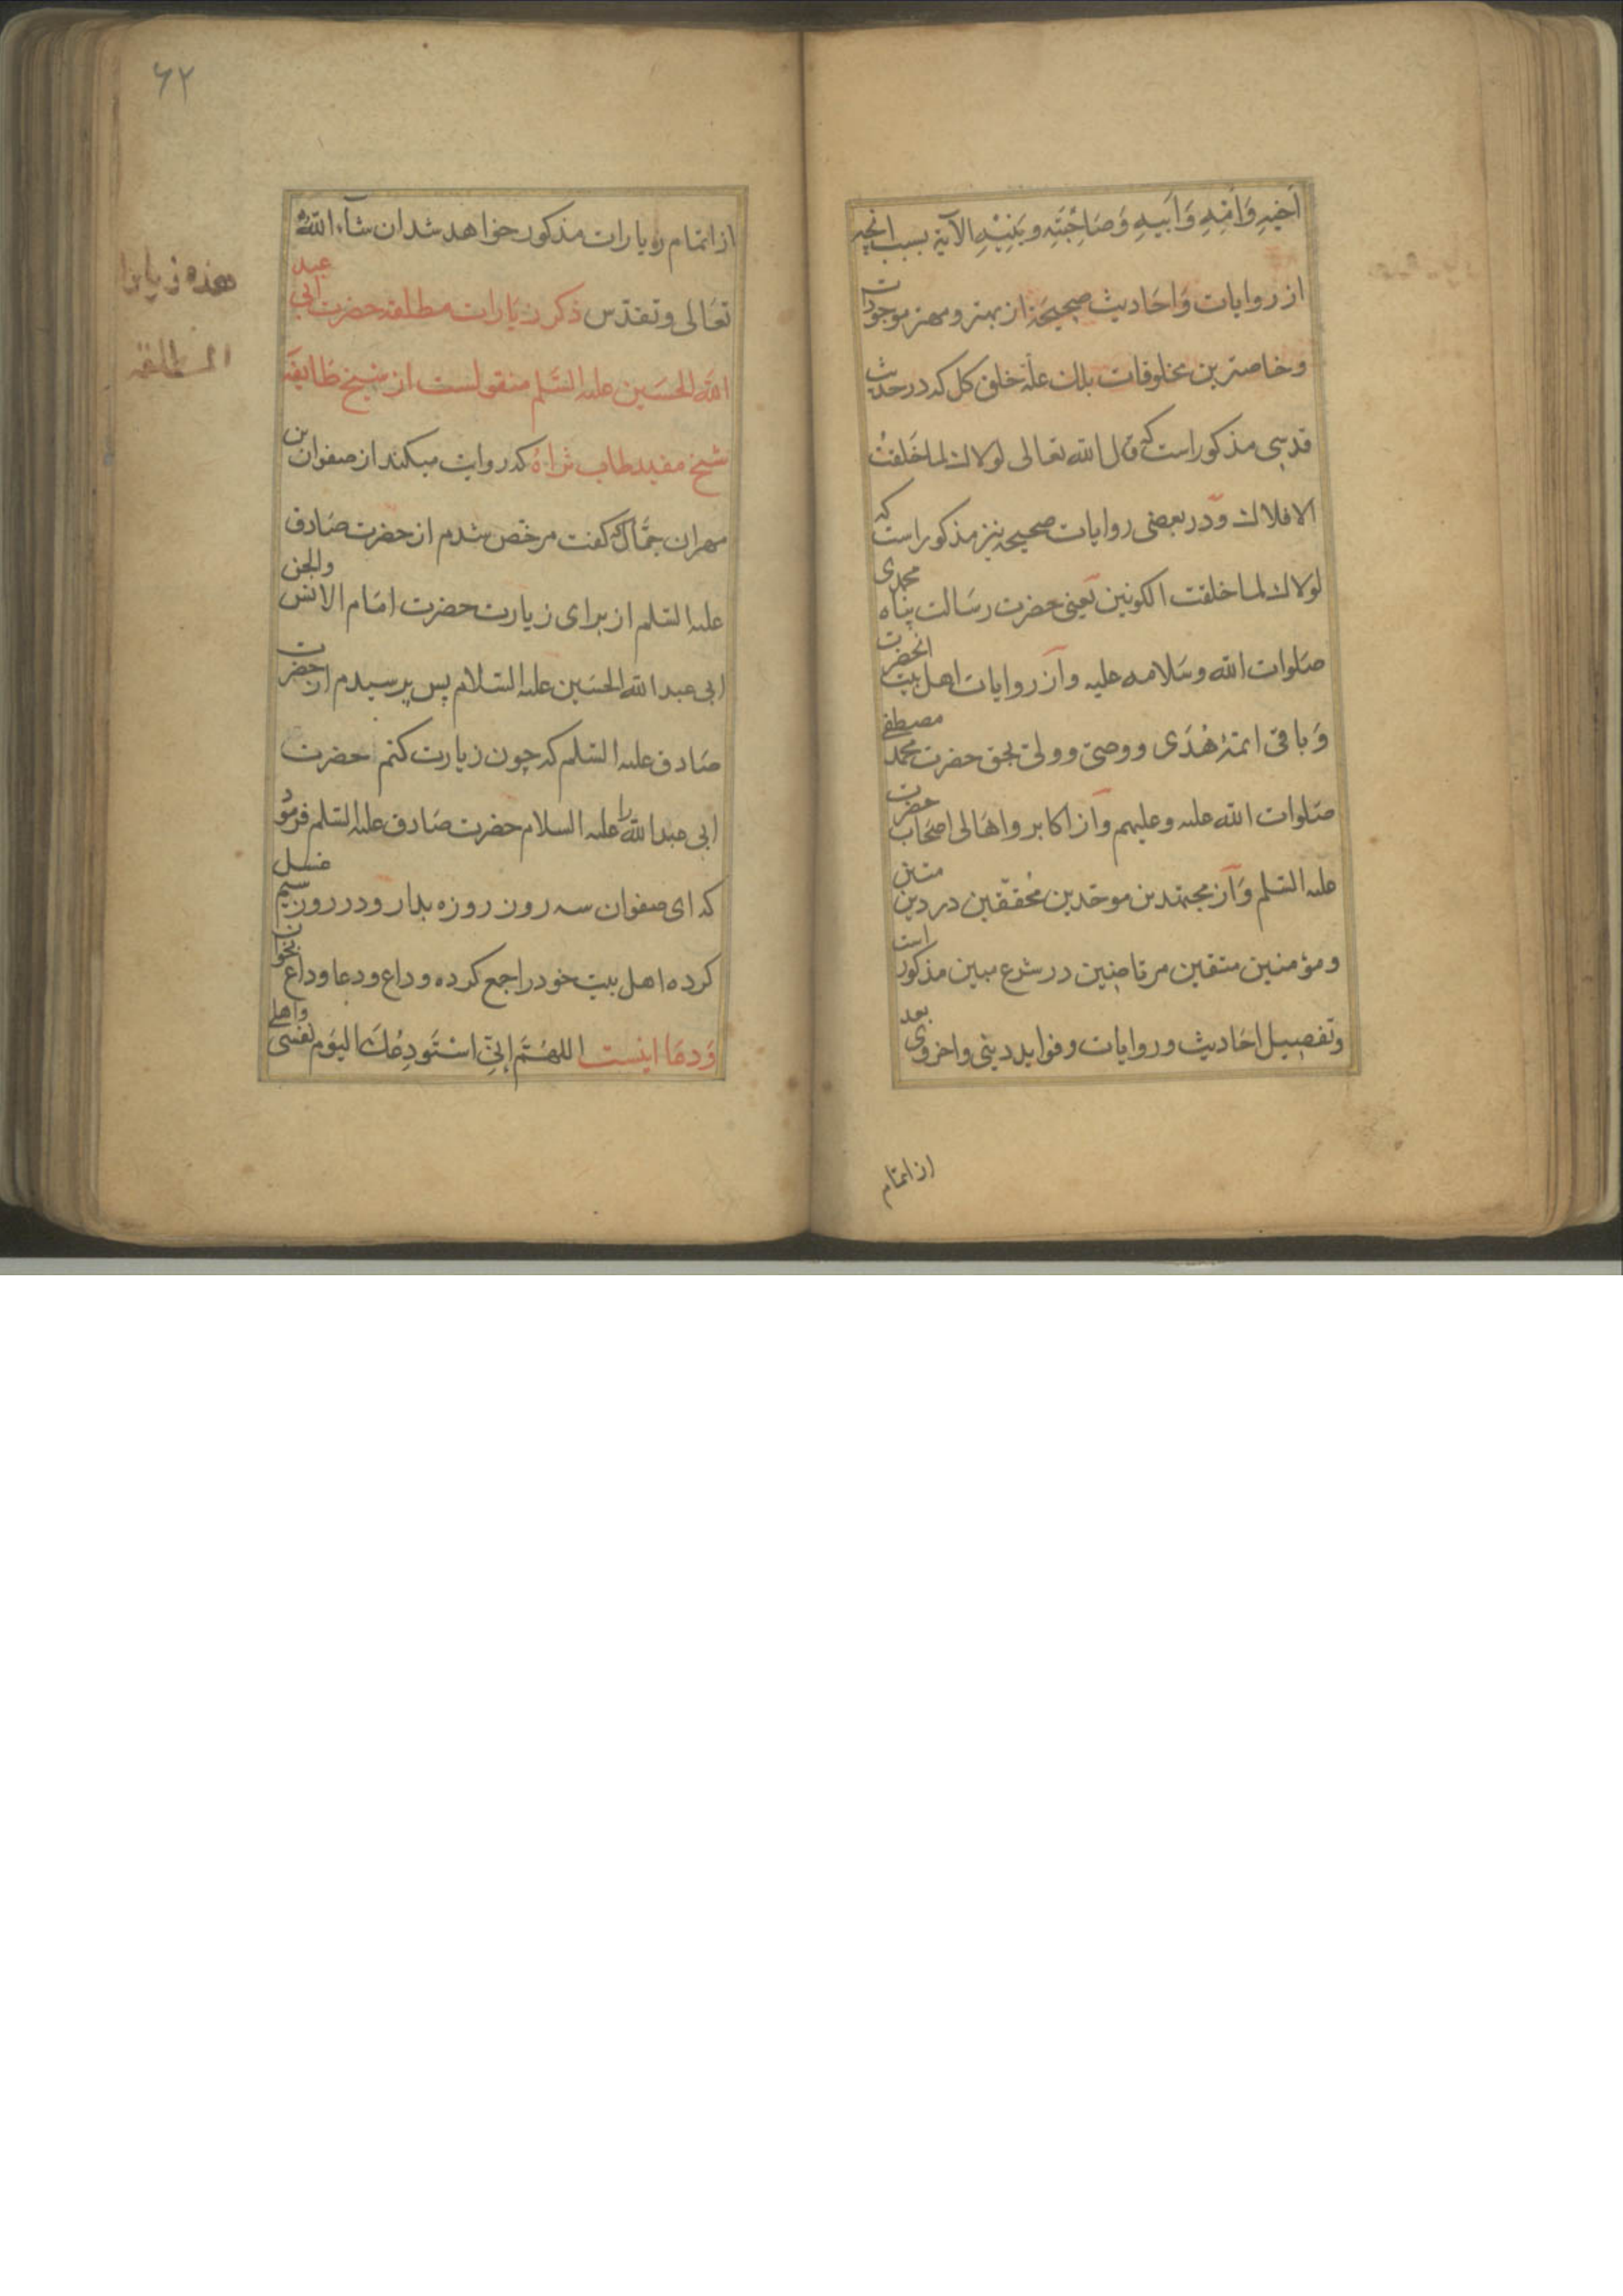 اَخیهِ وَاُمِّهِ وَاَبیهِ وَصَاحِبَتِهِ وبَنیهِ الآیة بسبب انچه
از روایات وَاحَادیث صحیحَه از بهتر و مهتر موجودات
وخاصترین مخلوقات بلك علّة خلق كل كه در حدیث
قدسی مذكور است كه قال الله تعالی لولاك لما خَلقتُ
الافلاك وَدر بعضی روایات صحیحه نیز مذكور است كه
لولاك لما خلقت الكونین یَعنی حضرت رسَالت پناه محمدی
صَلوات الله وسَلامه علیه وَاَز روایات اهل بیت انحضرت
وَباقی ائمّهٔ هُدَی ووصیّ وولیّ بحق حضرت محمّد مصطفی
صَلوات الله علیه وعلیهم وَاَز اكابر واهَالی اصحَاب حضرت
علیه السَّلم وَاَز مجتهدین موحّدین مُحققّین در دین متین
ومؤمنین متقین مرتاضین در شرع مبین مذكور است
وتَفصیل احَادیث وروایات وفواید دینی واخروی بعد
از اتمام
۶۲
از اتمام زیارات مذكور خواهد شد ان شآء اللهُ
تعَالی وتقدّس ذكر زیَارات مطلقه حضرت ابی عبد
الله الحسَین علیه السَّلم منقولست از شیخ طَایفَه
شیخ مفید طاب ثرَاهُ كه روایت میكند از صفوان بن
مهران جمَّال كه كفت مرخّص شدم از حضرت صَادق
علیه السَّلم از برای زیارت حضرت امَام الانس والجن
ابی عبد الله الحسَین علیه السَّلام پس پرسیدم از حضرت
صَادق علیه السَّلم كه چون زیارت كنم حضرت
ابی عبد الله را علیه السلام حضرت صَادق علیه السَّلم فرمُود
كه ای صفوان سه روز روزه بدار ودر روز سیم غسل
كرده اهل بیت خود را جمع كرده وداع ودعا وداع بخوان
وَدعَا اینست اللهُمَّ اِنّی اسْتَودِعُكَ الیَوم نفسی واهلی
هذه زیارة
المطلقه